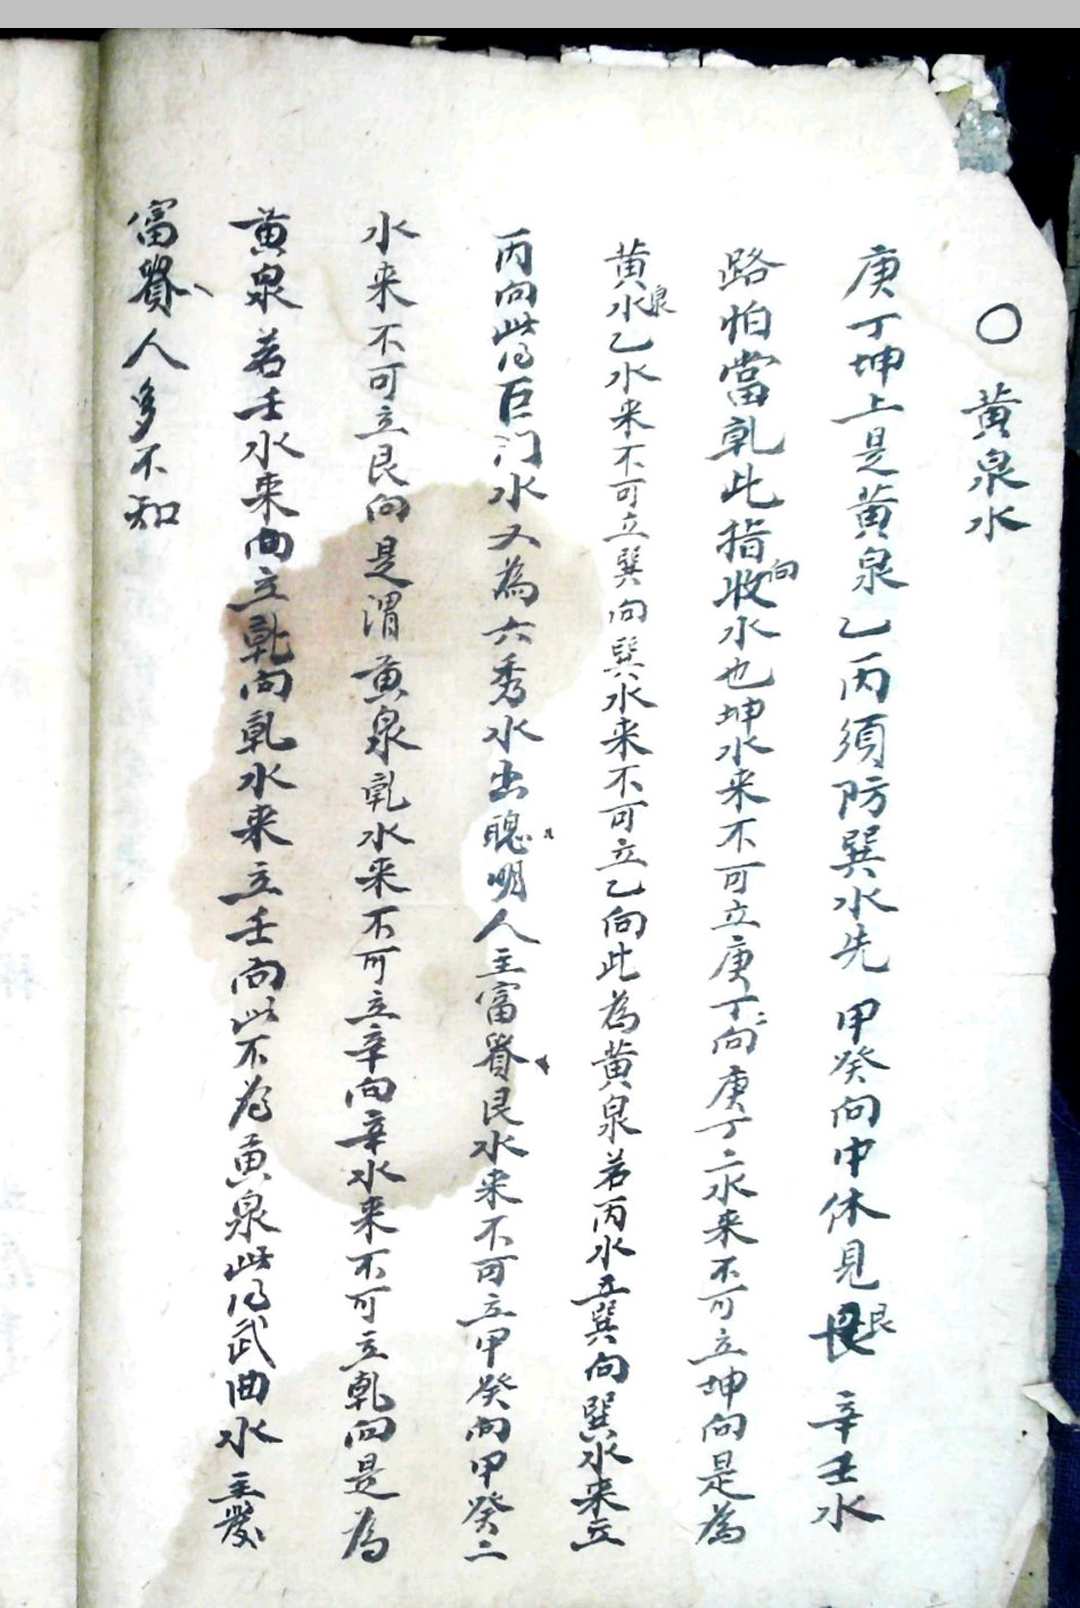 〇 黄泉水
庚丁坤上是黄泉乙丙須防巽水先 甲癸向中休見艮 辛壬水
路怕當乹此指收向水也坤水来不可立庚丁向庚丁二水来不可立坤向是為
黄泉水乙水来不可立巽向巽水来不可立乙向此為黄泉若丙水立巽向巽水来立
丙向此得巨门水又為六秀水出聰明人主富貴艮水来不可立甲癸向甲癸二
水来不可立艮向是谓黄泉乹水来不可立辛向辛水来不可立乹向是為
黄泉若壬水来向立乹向乹水来立壬向此不為黄泉此得武曲水主發
富貴人多不知